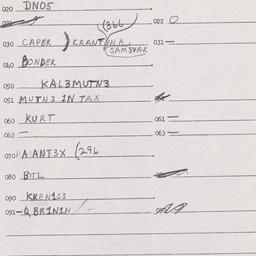 020 DNO5
(366 022 O
030 CAPER ) KRANT INA 031—
SAM3VAR
040 BONDER
050 KAL3MUTN3
051 MUTN3 IN TAX
060 KURT 061 —
062 — 063 —
070 AANT3X (296
080 BITL
090 KREN1C3
091— Q BR1N1N